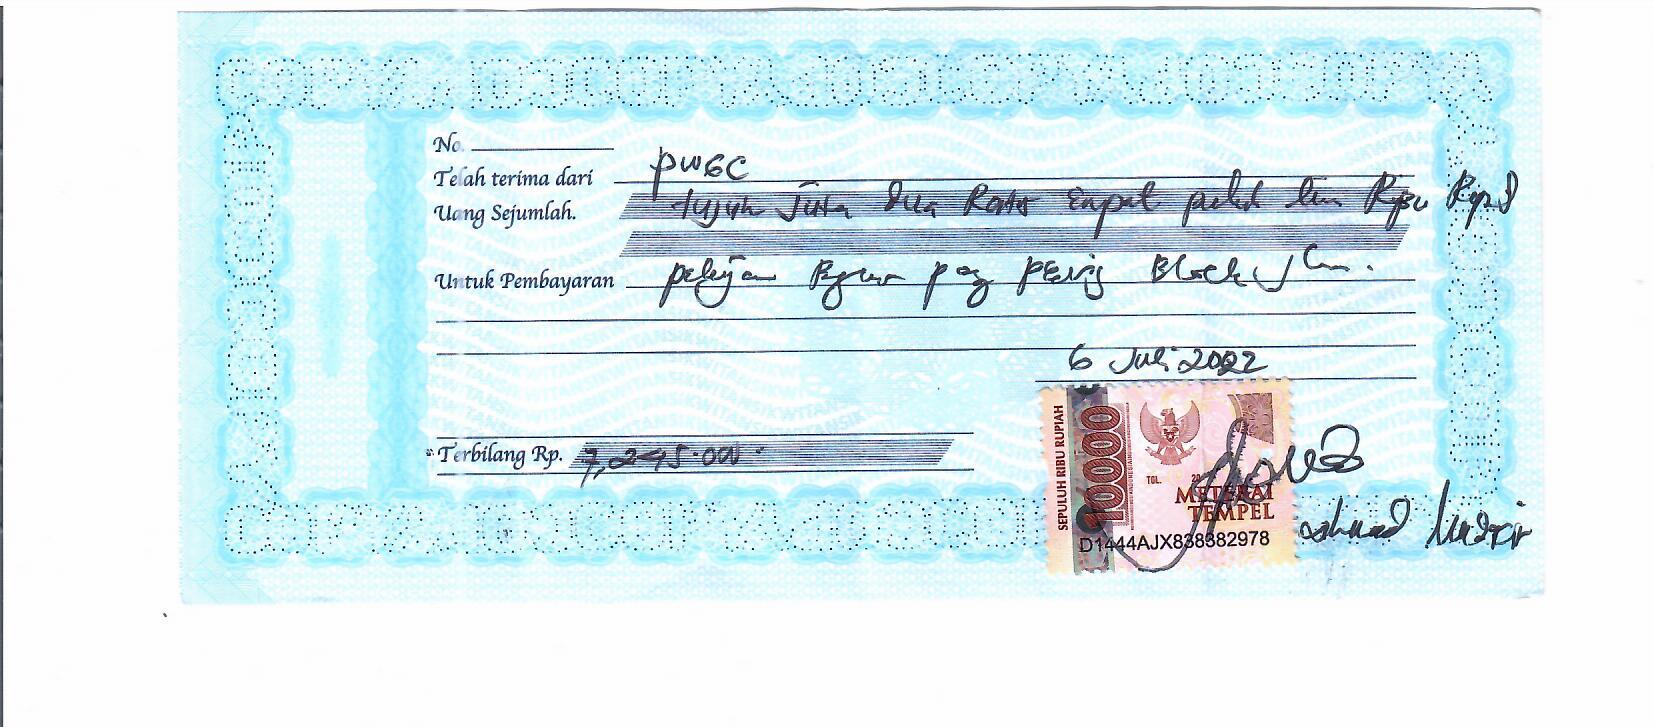 No.
Telah terima dari PWGC
Uang Sejumlah. tujuh Juta dua Ratus Empat puluh lima Ribu Rupiah
Untuk Pembayaran pekerjaan paving Block
6 Juli 2022
Terbilang Rp. 7,245.000
SEPULUH RIBU RUPIAH
10000
TGL. 20
METERAI
TEMPEL
D1444AJX838382978